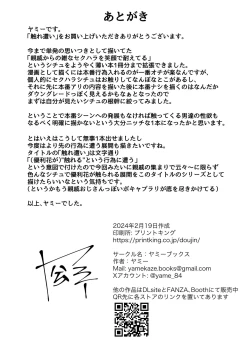 あとがき
ヤミーです。
「触れ遣い」をお買い上げいただきありがとうございます。
今まで単発の思いつきとして描いてた
「親戚からの嫌なセクハラを笑顔で耐えてる」
というシチュをようやく薄い本1冊分まで拡張できました。
漫画として描くには本番行為入れるのが一番オチが楽なんですが、
個人的にセクハラシチュはお触りしてなんぼなとこあるし、
それに先に本番アリの内容を描いた後に本番ナシを描くのはなんだか
ダウングレードっぽく見えるからなぁとなったので
まずは自分が見たいシチュの根幹に絞ってみました。
ということで本番シーンへの発展もなければ触ってくる男達の性欲も
なるべく明確に描かないという大分ニッチな1本になったかと思います。
とはいえはこうして無事1本出せましたし
今度はより先の行為に踏み切った話も描いてみたいし
タイトルの「触れ遣い」は文字通り
「(優利花が)"触れる"という行為に遣う」
という意図で付けたので今回みたいに親戚の集まりで云々～に限らず
色んなシチュで優利花が触られる展開をこのタイトルのシリーズとして
描けたらいいなという気持ちです。
(というかもう親戚おじさんっぽいキャラのバリエが底を尽きかけてる)
以上、ヤミーでした。
2024年2月19日作成
印刷所: プリントキング
https://printking.co.jp/doujin/
サークル名：ヤミーブックス
作者：ヤミー
Mail: yamekaze.books@gmail.com
Xアカウント: @yame_84
他の作品はDLsiteとFANZA、Boothにて販売中
QR先に各ストアのリンクを置いてあります